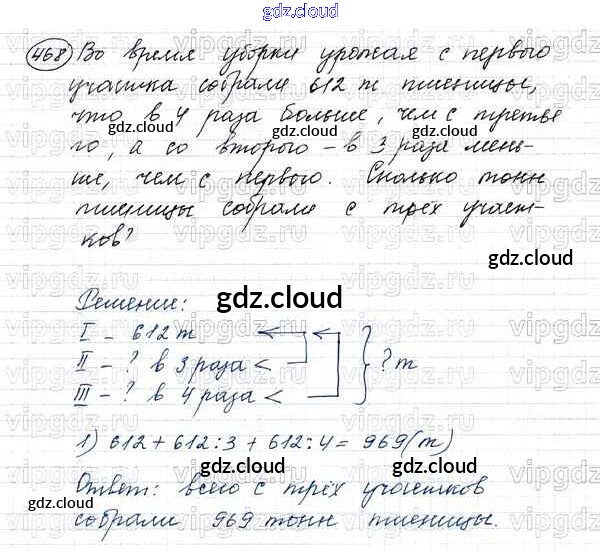 gdz.cloud
468 Во время уборки урожая с первого
участка собрали 612 т пшеницы,
что в 4 раза больше, чем с третье-
го, а со второго - в 3 раза мень-
ше, чем с первого. Сколько тонн
пшеницы собрали с трёх участ-
ков?
Решение:
I - 612 т
II - ? в 3 раза <
III - ? в 4 раза <
} ? т
1) 612 + 612 : 3 + 612 : 4 = 969 (т)
Ответ: всего с трёх участков
собрали 969 тонн пшеницы.
gdz.cloud
gdz.cloud
gdz.cloud
gdz.cloud
gdz.cloud
gdz.cloud
gdz.cloud
gdz.cloud
gdz.cloud
gdz.cloud
gdz.cloud
vipgdz.ru